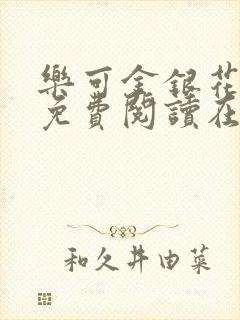 樂可金銀花
免費閱讀在
和久井由菜